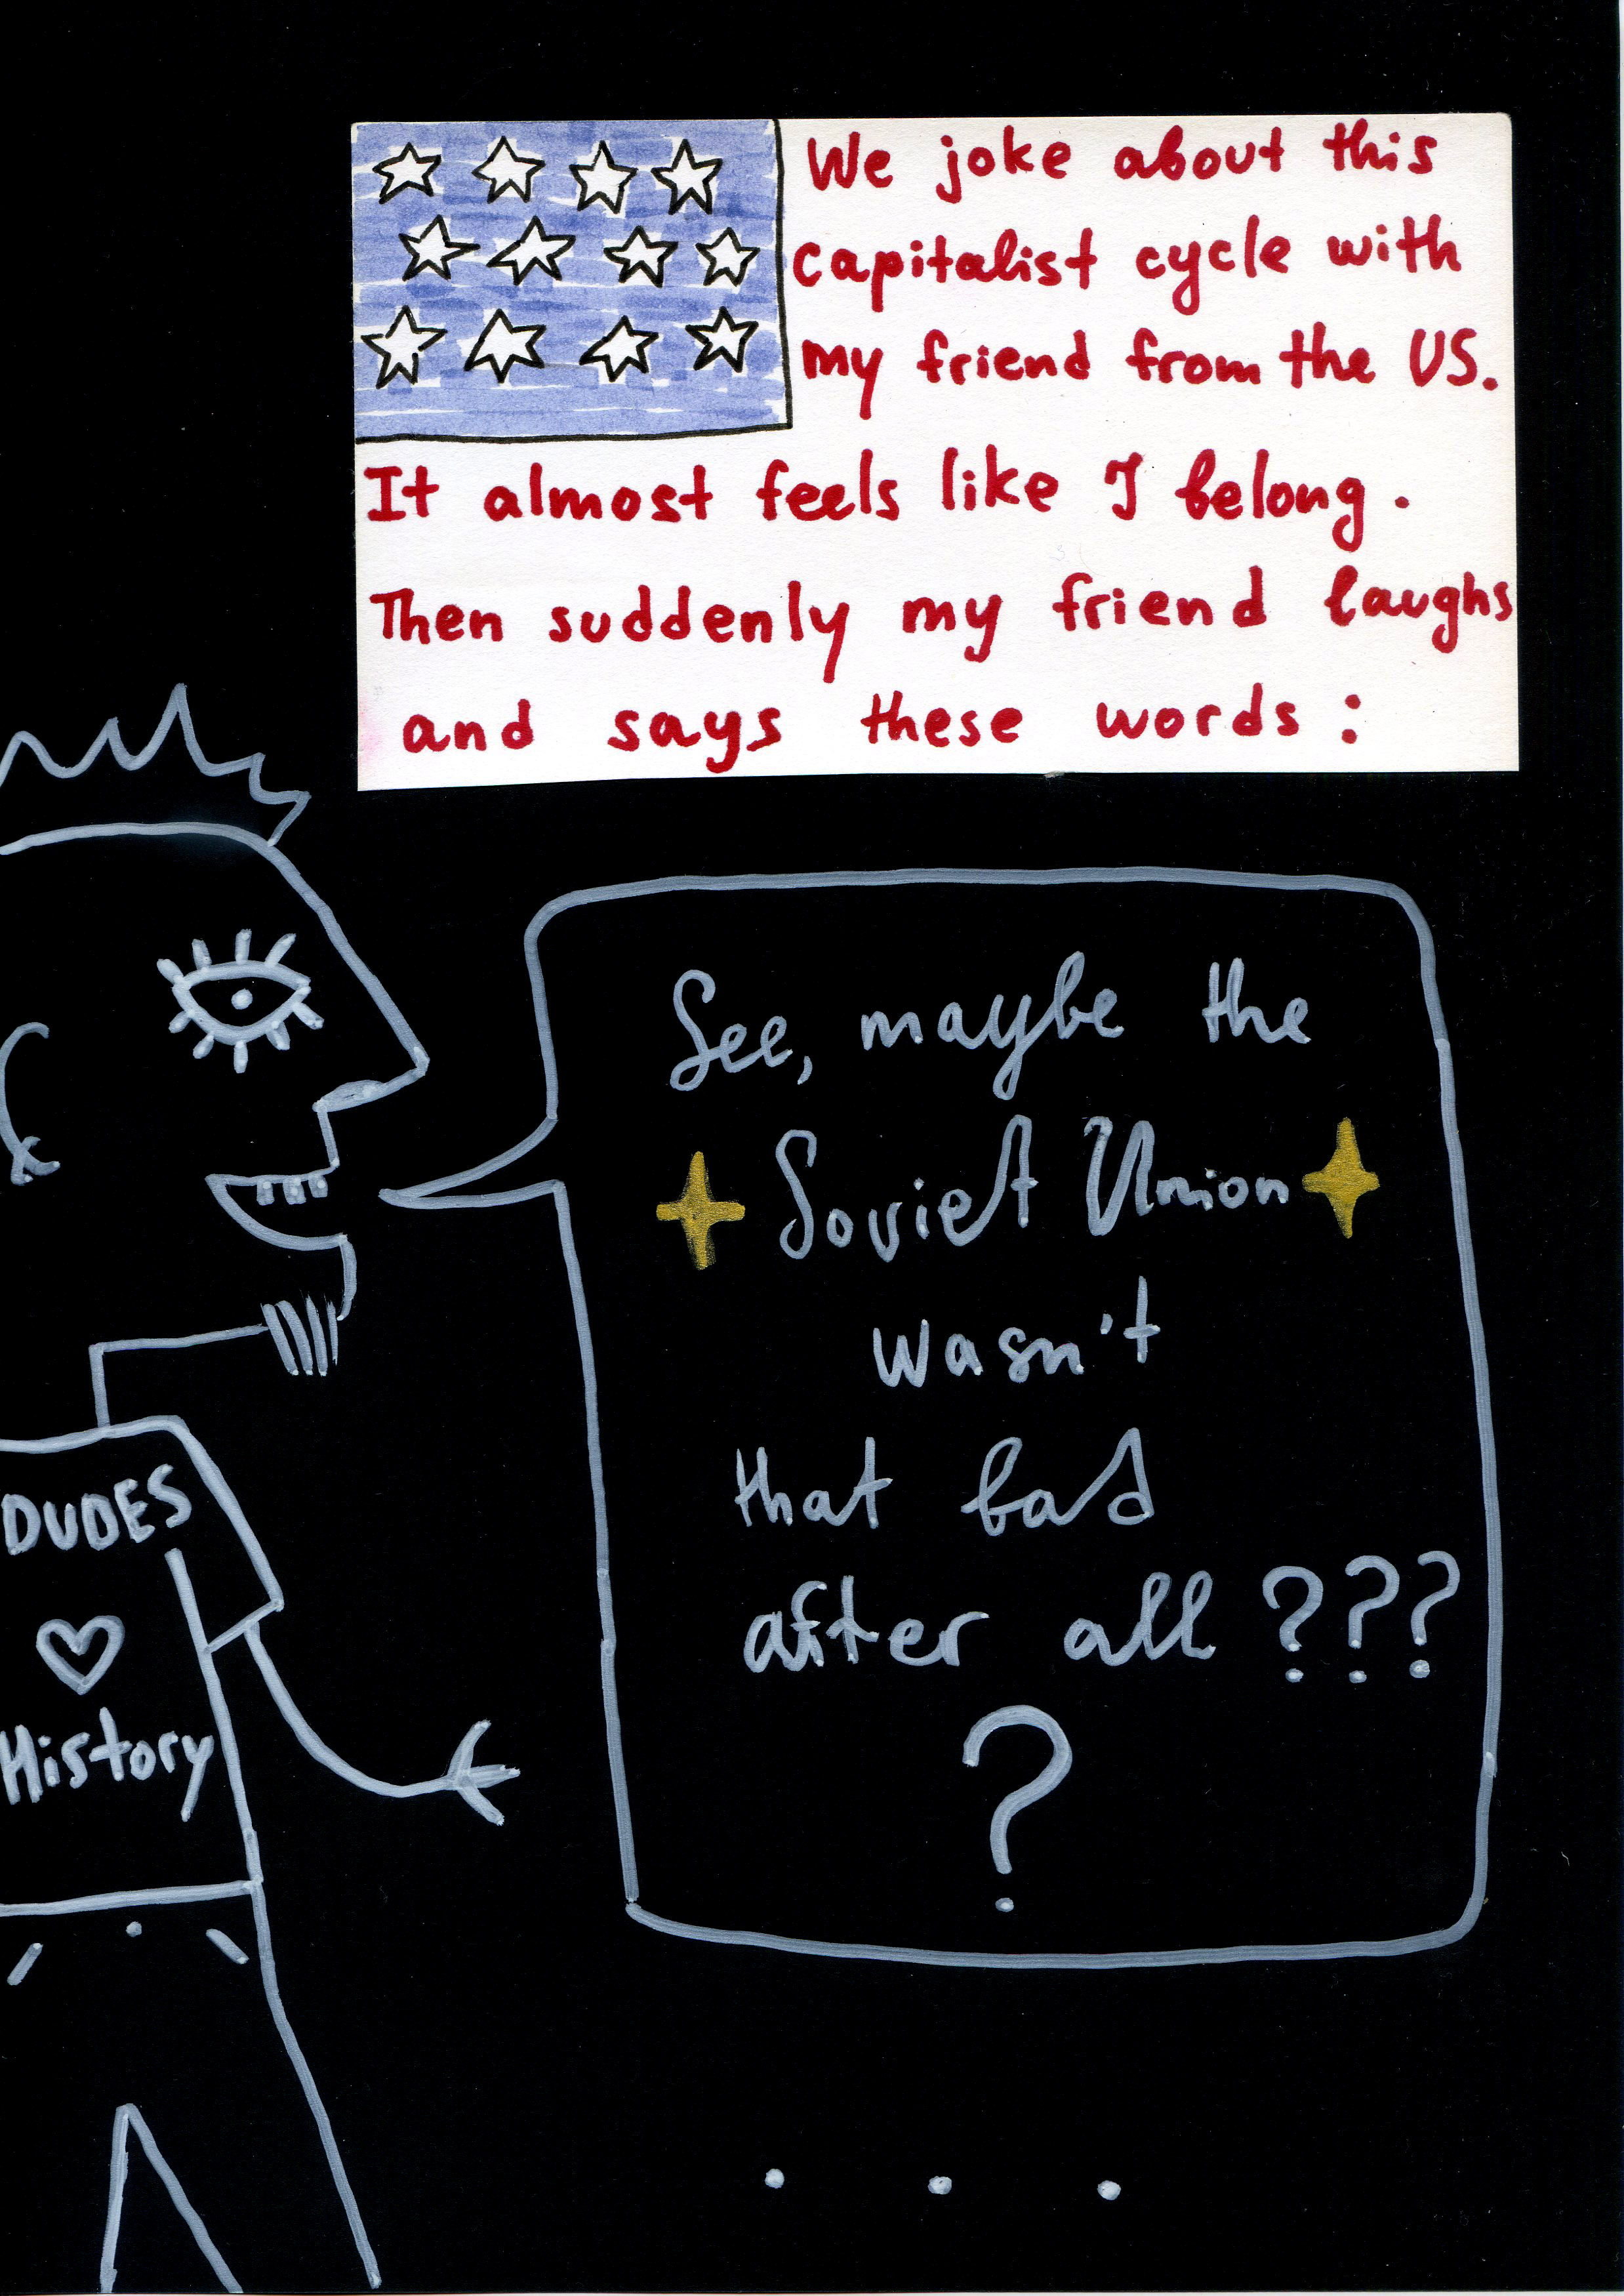 We joke about this
capitalist cycle with
my friend from the US.
It almost feels like I belong.
Then suddenly my friend laughs
and says these words:
See, maybe the
Soviet Union
wasn't
that bad
after all ???
?
DUDES
♡
History
...